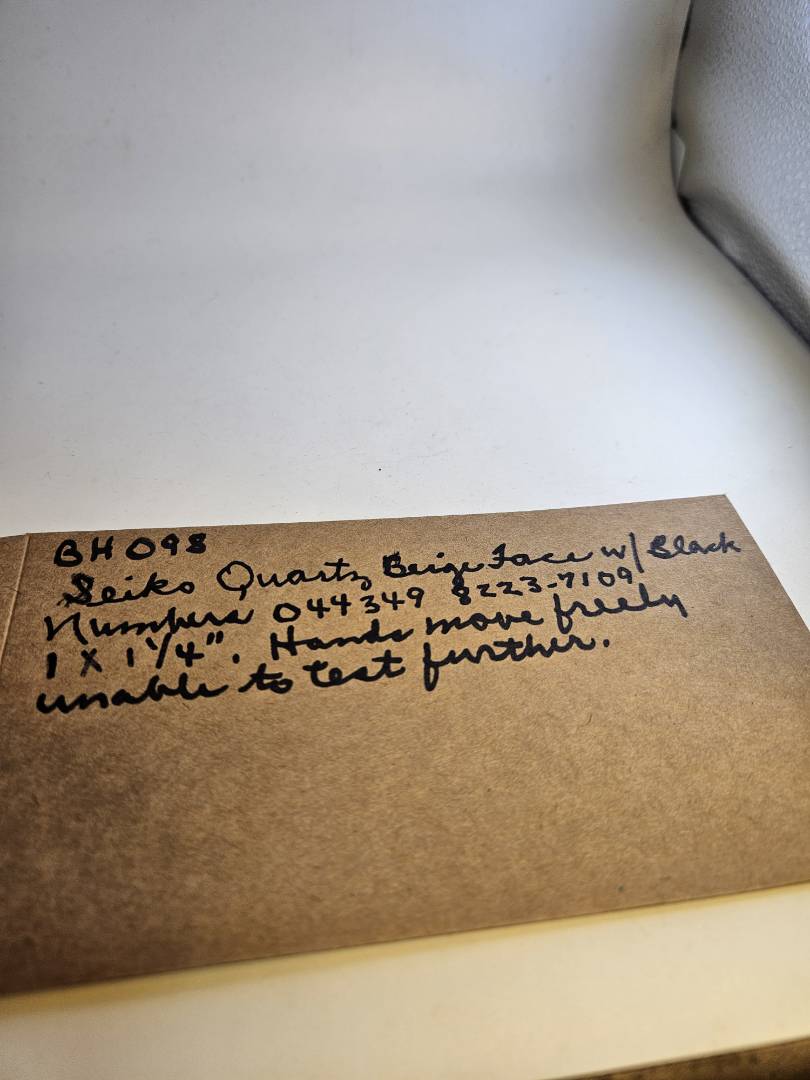 BH 098
Seiko Quartz Beige Face w/ Black
Numbers 044349 8223-7109.
1 x 1 1/4". Hands move freely
unable to test further.